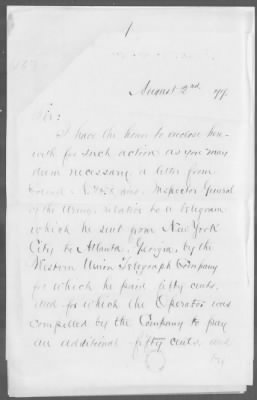 1
August 2nd 79.
Sir:
I have the honor to enclose here-
with for such action as you may
deem necessary a letter from
Inspector General
of the Army, relative to a telegram
which he sent from New York
City to Atlanta, Georgia, by the
Western Union Telegraph Company
for which he paid fifty cents,
and for which the Operator was
compelled by the Company to pay
an additional fifty cents, and